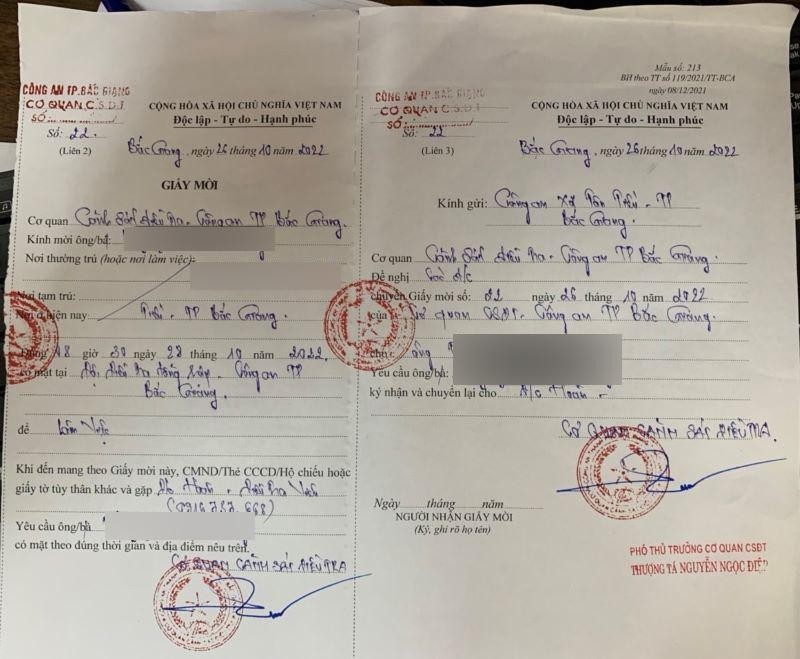 CÔNG AN TP.BẮC GIANG
CƠ QUAN C.S.Đ.T
SỐ
CỘNG HÒA XÃ HỘI CHỦ NGHĨA VIỆT NAM
Độc lập - Tự do - Hạnh phúc
Số: 22.
(Liên 2)
Bắc Giang, ngày 26 tháng 10 năm 2022
GIẤY MỜI
Cơ quan Cảnh sát điều tra - Công an TP Bắc Giang.
Kính mời ông/bà:
Nơi thường trú (hoặc nơi làm việc):
Nơi tạm trú:
Nơi ở hiện nay Triều - TP Bắc Giang.
Đúng 18 giờ 30 ngày 28 tháng 10 năm 2022.
có mặt tại Đội điều tra tổng hợp - Công an TP
Bắc Giang.
để làm việc
Khi đến mang theo Giấy mời này, CMND/Thẻ CCCD/Hộ chiếu hoặc
giấy tờ tùy thân khác và gặp Đ/c Hoàn - Điều tra viên
Yêu cầu ông/bà
có mặt theo đúng thời gian và địa điểm nêu trên.
CƠ QUAN CẢNH SÁT ĐIỀU TRA
Mẫu số: 213
BH theo TT số 119/2021/TT-BCA
ngày 08/12/2021
CÔNG AN TP.BẮC GIANG
CƠ QUAN C.S.Đ.T
SỐ
CỘNG HÒA XÃ HỘI CHỦ NGHĨA VIỆT NAM
Độc lập - Tự do - Hạnh phúc
Số: 22
(Liên 3)
Bắc Giang, ngày 26 tháng 10 năm 2022
Kính gửi: Công an xã Tân Tiến - TP
Bắc Giang.
Cơ quan Cảnh sát điều tra - Công an TP Bắc Giang.
Đề nghị các đ/c
chuyển Giấy mời số: 22 ngày 26 tháng 10 năm 2022
của Cơ quan CSĐT - Công an TP Bắc Giang.
cho ông
Yêu cầu ông/bà:
ký nhận và chuyển lại cho Đ/c Hoàn
CƠ QUAN CẢNH SÁT ĐIỀU TRA.
Ngày tháng năm
NGƯỜI NHẬN GIẤY MỜI
(Ký, ghi rõ họ tên)
PHÓ THỦ TRƯỞNG CƠ QUAN CSĐT
THƯỢNG TÁ NGUYỄN NGỌC ĐIỆP